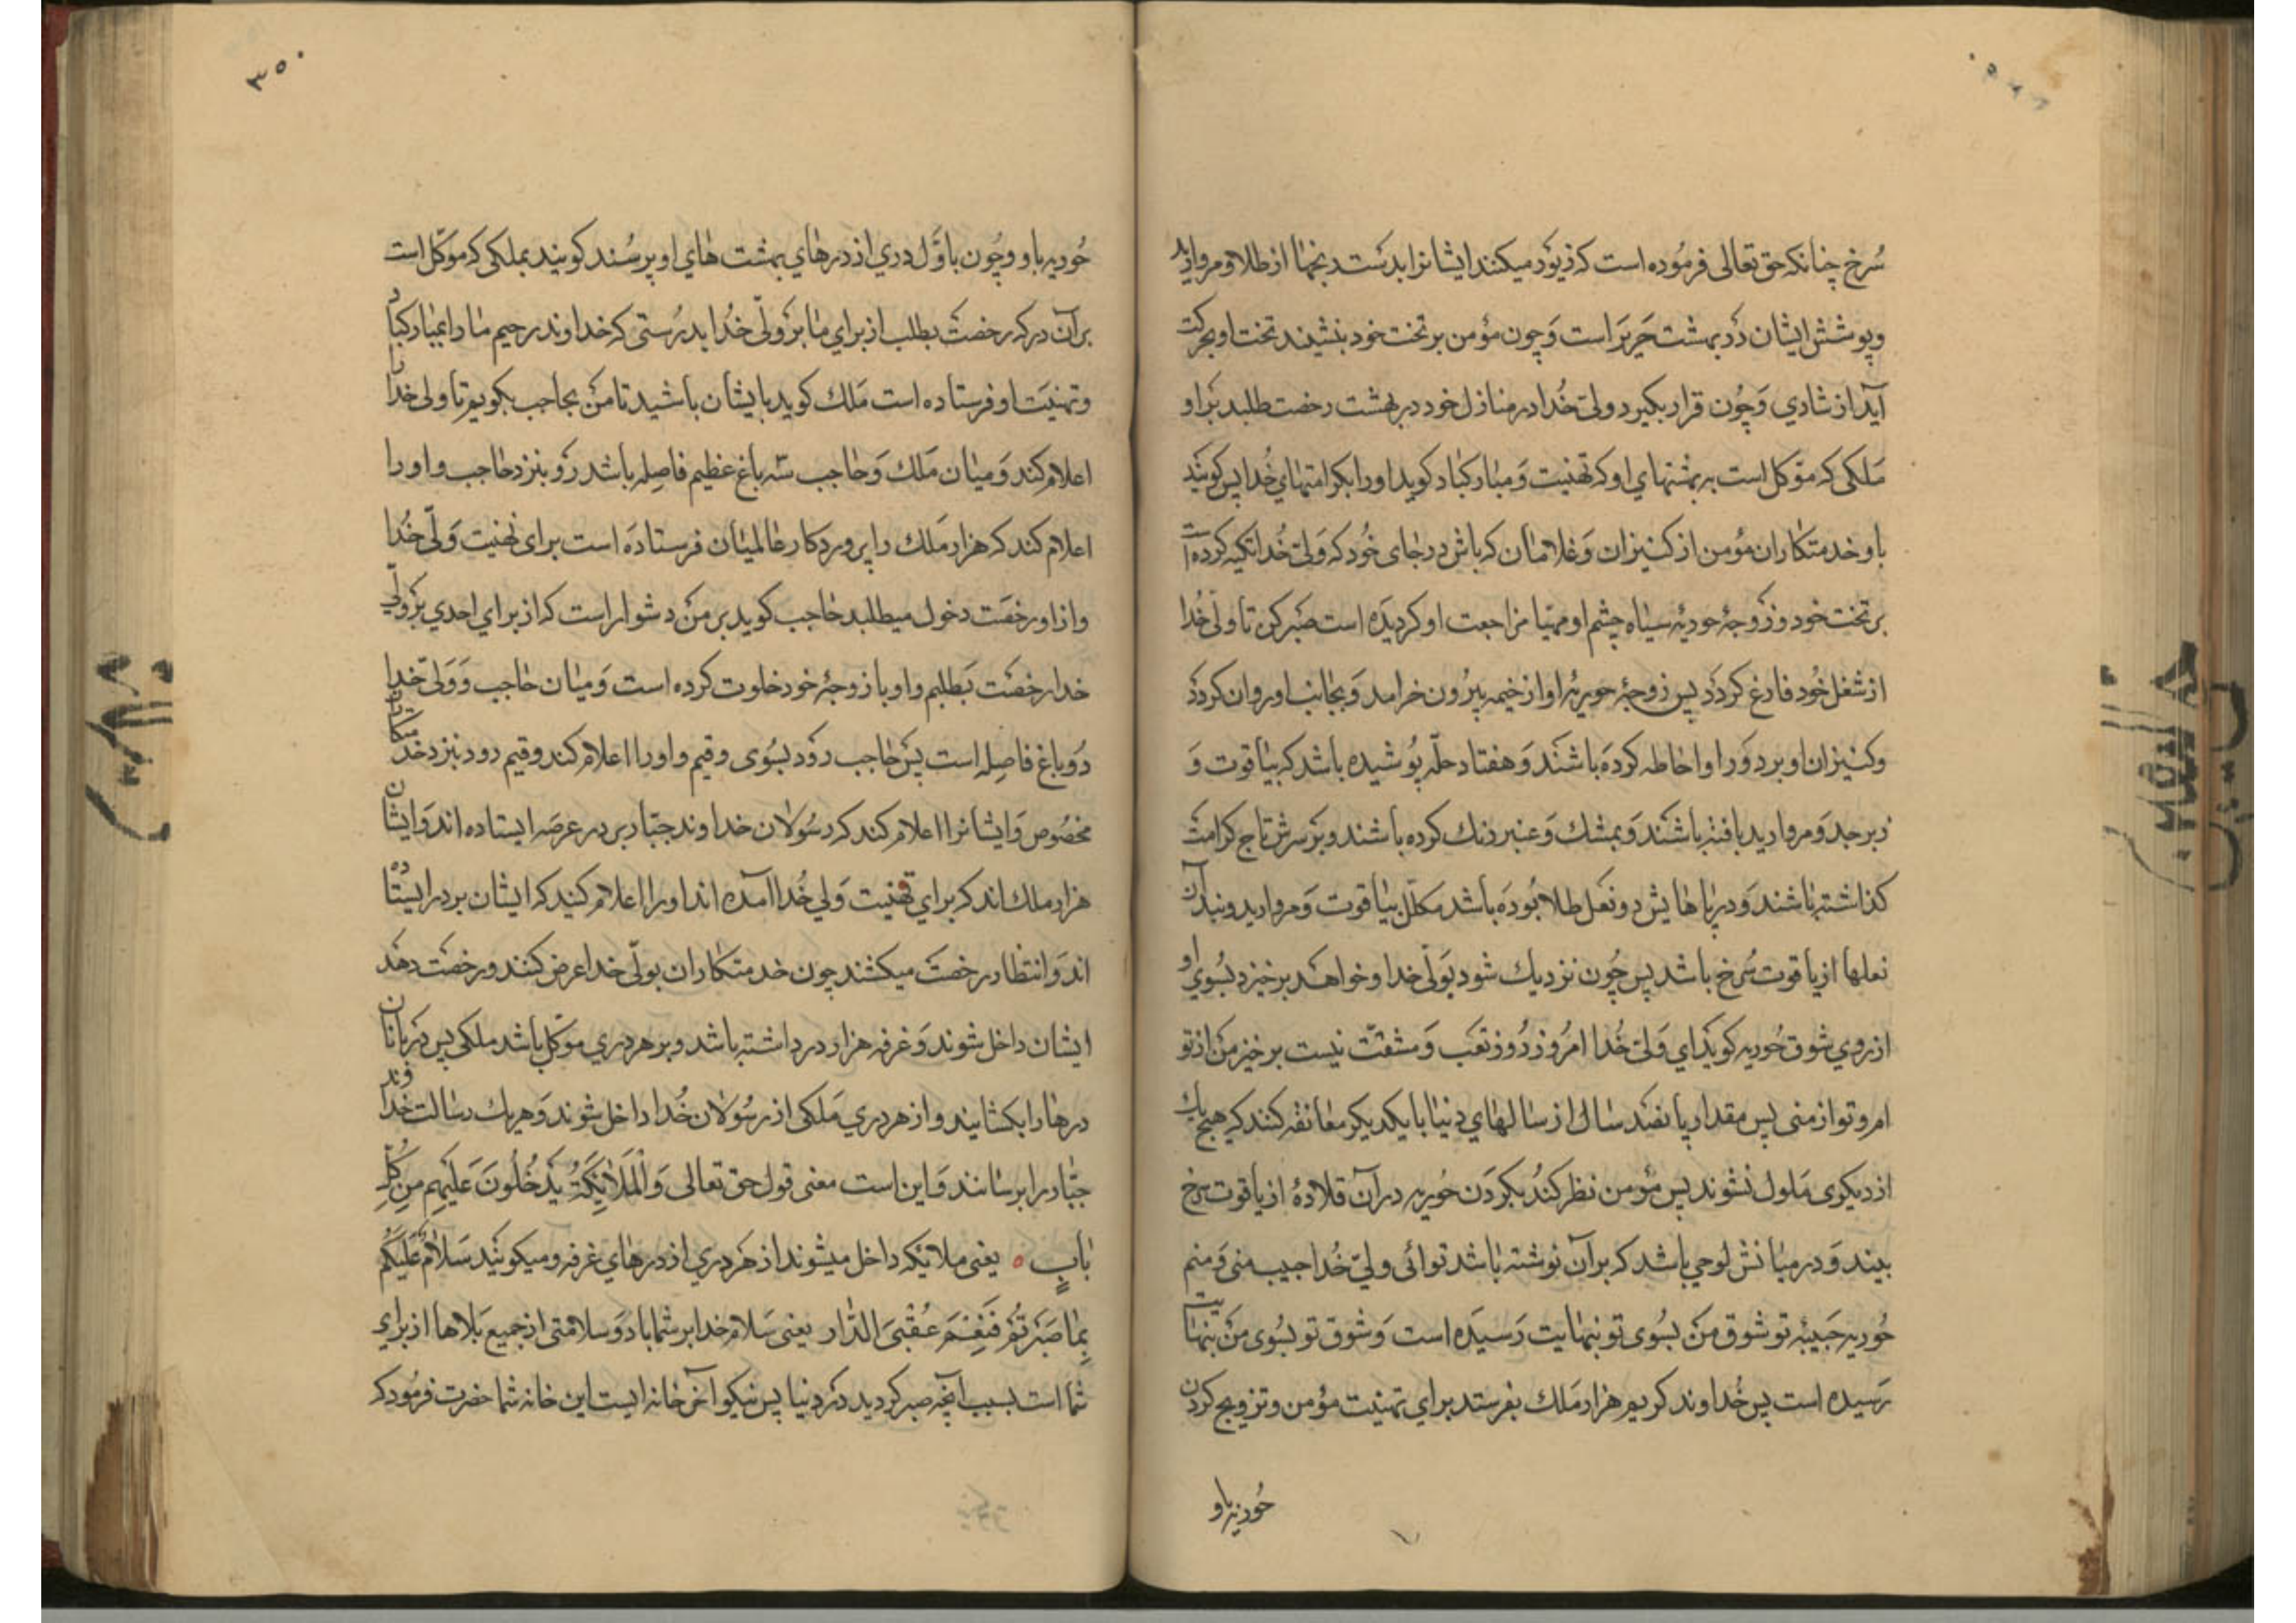 سُرخ چنانکه حق تعالی فرمُوده است که زیوَر میکنند ایشانرا بدست رنجها از طلا و مروارید
و پوشش ایشان دَر بهشت حَریرَ است وَ چون مؤمن بر تخت خود بنشیند تخت او بحرکت
آید از شادي وَ چُون قرار بکیرد ولیّ خُدا در منازل خود در بهشت رخصت طلبد بَراو
مَلکی که موَکل است بر بهشتهاي او که تهنیت وَ مبارکباد کوید او را بکرامتهاي خُدا پس کویند
باو خدمتکاران مؤمن از کنیزان وَ غلامان که باش در جای خُود که وَلیّ خُدا تکیه کرده است
بر تخت خود و زَوجۀ حوریۀ سیاه چشم او مهیّا مزاجعت او کردیَده است صَبر کن تا ولیّ خُدا
از شغل خُود فارغ کردَد پس زوجۀ حوریۀ او از خیمه بیرُون خرامد وَ بجانب او روان کردَد
و کنیزان او بر دَور او احاطه کردَه باشَند وَ هفتاد حلّه پُوشیده باشد که بیاقوت وَ
زبرجد وَ مروارید بافته باشَند وَ بمشك وَ عنبر رنك کرده باشند و بَر سرش تاج کرامَت
کذاشته باشند وَ در پاهایش دو نَعل طلا بُودَه باشد مکلّل بیاقوت وَ مروارید و بند آن
نعلها از یاقوت سُرخ باشد پس چُون نزدیك شود بوَلّی خدا و خواهَد برخیزد بسُوي او
از روي شوق حُوریه کویَد اي وَلیّ خُدا امرُوز رُوز تعَب وَ مشقّت نیست برخیز من از تو
ام و تو از منی پس مقدار پانصَد سَال از سالهاي دنیا با یکدیکر معانقه کنند که هیچ یك
از دیکری مَلول نشوند پس مؤمن نظر کندُ بکردَن حُوریه در آن قلادۀ از یاقوت سرخ
بیند وَ در میانش لوحي باشد که برآن نوشته باشد توائی ولیّ خُدا حبیب منی وَ منم
حُوریه حَبیبۀ تو شوق مَن بسُوی تو بنهایت رَسیدَه است وَ شوق تو بسُوی مَن بنهایت
رَسیده است پس خُداوند کریم هزار مَلك بفرستد براي تهنیت مؤمن و تزویج کردن
حُوریه باو
۳۵۰
حُوریه باو و چُون باوَّل دري از درهاي بهشت هاي او برسُند کویند بملکی که موَکّل است
برآن در که رخصَت بطلب از براي ما برَ ولّی خُدا بدرُستی که خداوند رحیم ما را بمبارکباد
و تهنیَت او فرستاده است مَلك کوید با یشان باشید تا مَن بحاجب بکویم تا ولی خدا را
اعلام کند وَ میان مَلك وَ حاجب سّه باغ عظیم فاصِله باشد رَو بنزد حاجب و او را
اعلام کند که هزار مَلك را پروردکار عالمیان فرستادَه است برای تهنیت وَ لّی خُدا
و از او رخصَت دخول میطلبد حاجب کوید بر مَن دشوار است که از براي احدي بَر ولّی
خدا رخصَت بَطلبم و او با زوجۀ خود خلوت کرده است وَ میان حاجب وَ وَلی خدا
دُو باغ فاصِله است پسَ حاجب رَود بسُوی و قیم و او را اعلام کند و قیم رود بنزد خدمتکاران
مخصُوص وَ ایشانرا اعلام کند که رسُولان خداوند جبّار بر در عرصَه ایستاده اند وَ ایشان
هزار ملك اند که براي تهنیت وَلي خُدا آمده اند او را اعلام کنید که ایشان بر در ایستاده
اند وَ انتظار رخصَت میکشند چون خدمتکاران بولّی خدا عرض کنند و رخصَت دهَد
ایشان داخل شوند وَ غرفه هزار در داشته باشد و بر هر دري موکّل باشد ملکی پس دَربانان
درها را بکشایند و از هر دري مَلکی از رسُولان خُدا داخل شوند وَ هریك رسالت خداوند
جبّار را برسانند وَ این است معنی قول حق تعالی وَ الْمَلَائِکَةُ یَدْخُلُونَ عَلَیْهِم مِن کُلِّ
بٰابٍ ٥ یعنی ملائکه داخل میشوند از هَر دري از درهاي غرفه و میکویَند سَلامٌ عَلَیْکُم
بِمٰا صَبَرْتُمْ فَنِعْمَ عُقْبَیَ الدّٰار یعنی سَلام خدا بر شما باد وَ سلامَتی از جمیع بَلاها از براي
شما است بسبب آنچه صبر کردید دَر دنیا پس نیکو آخر خانه ایست این خانه شما حضرت فرمُود که